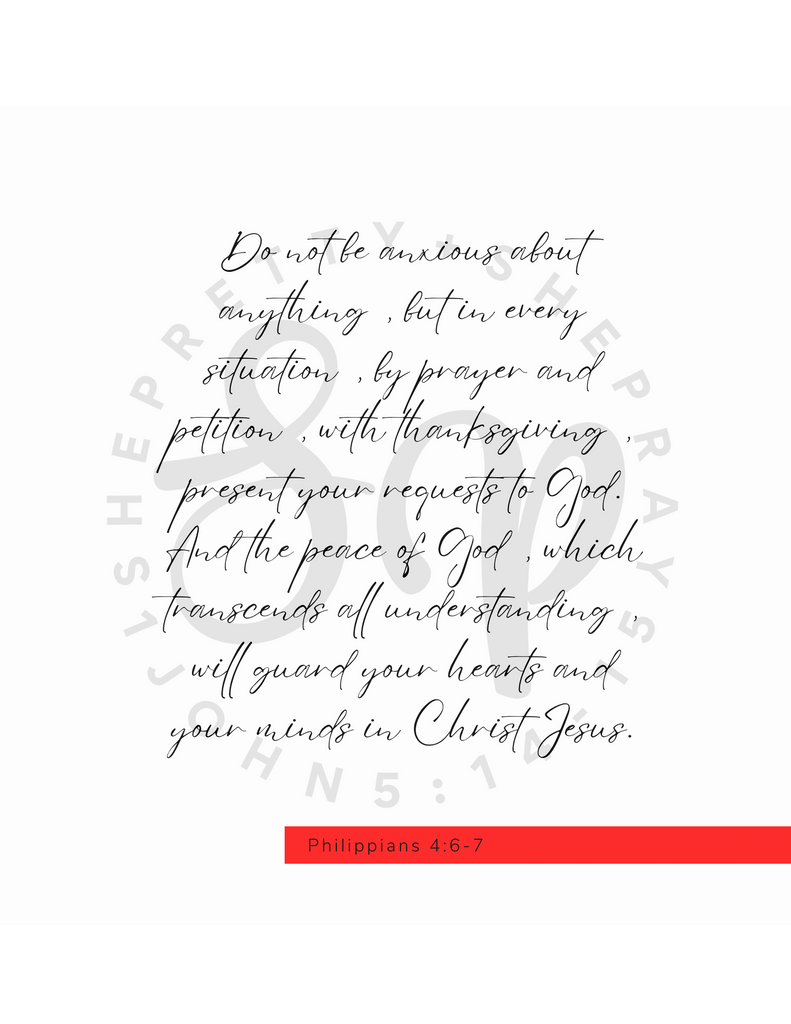 Do not be anxious about
anything , but in every
situation , by prayer and
petition , with thanksgiving ,
present your requests to God.
And the peace of God , which
transcends all understanding ,
will guard your hearts and
your minds in Christ Jesus.
Philippians 4:6-7
SHEPRETTY+SHEPRAY
1JOHN5:14-15
SP